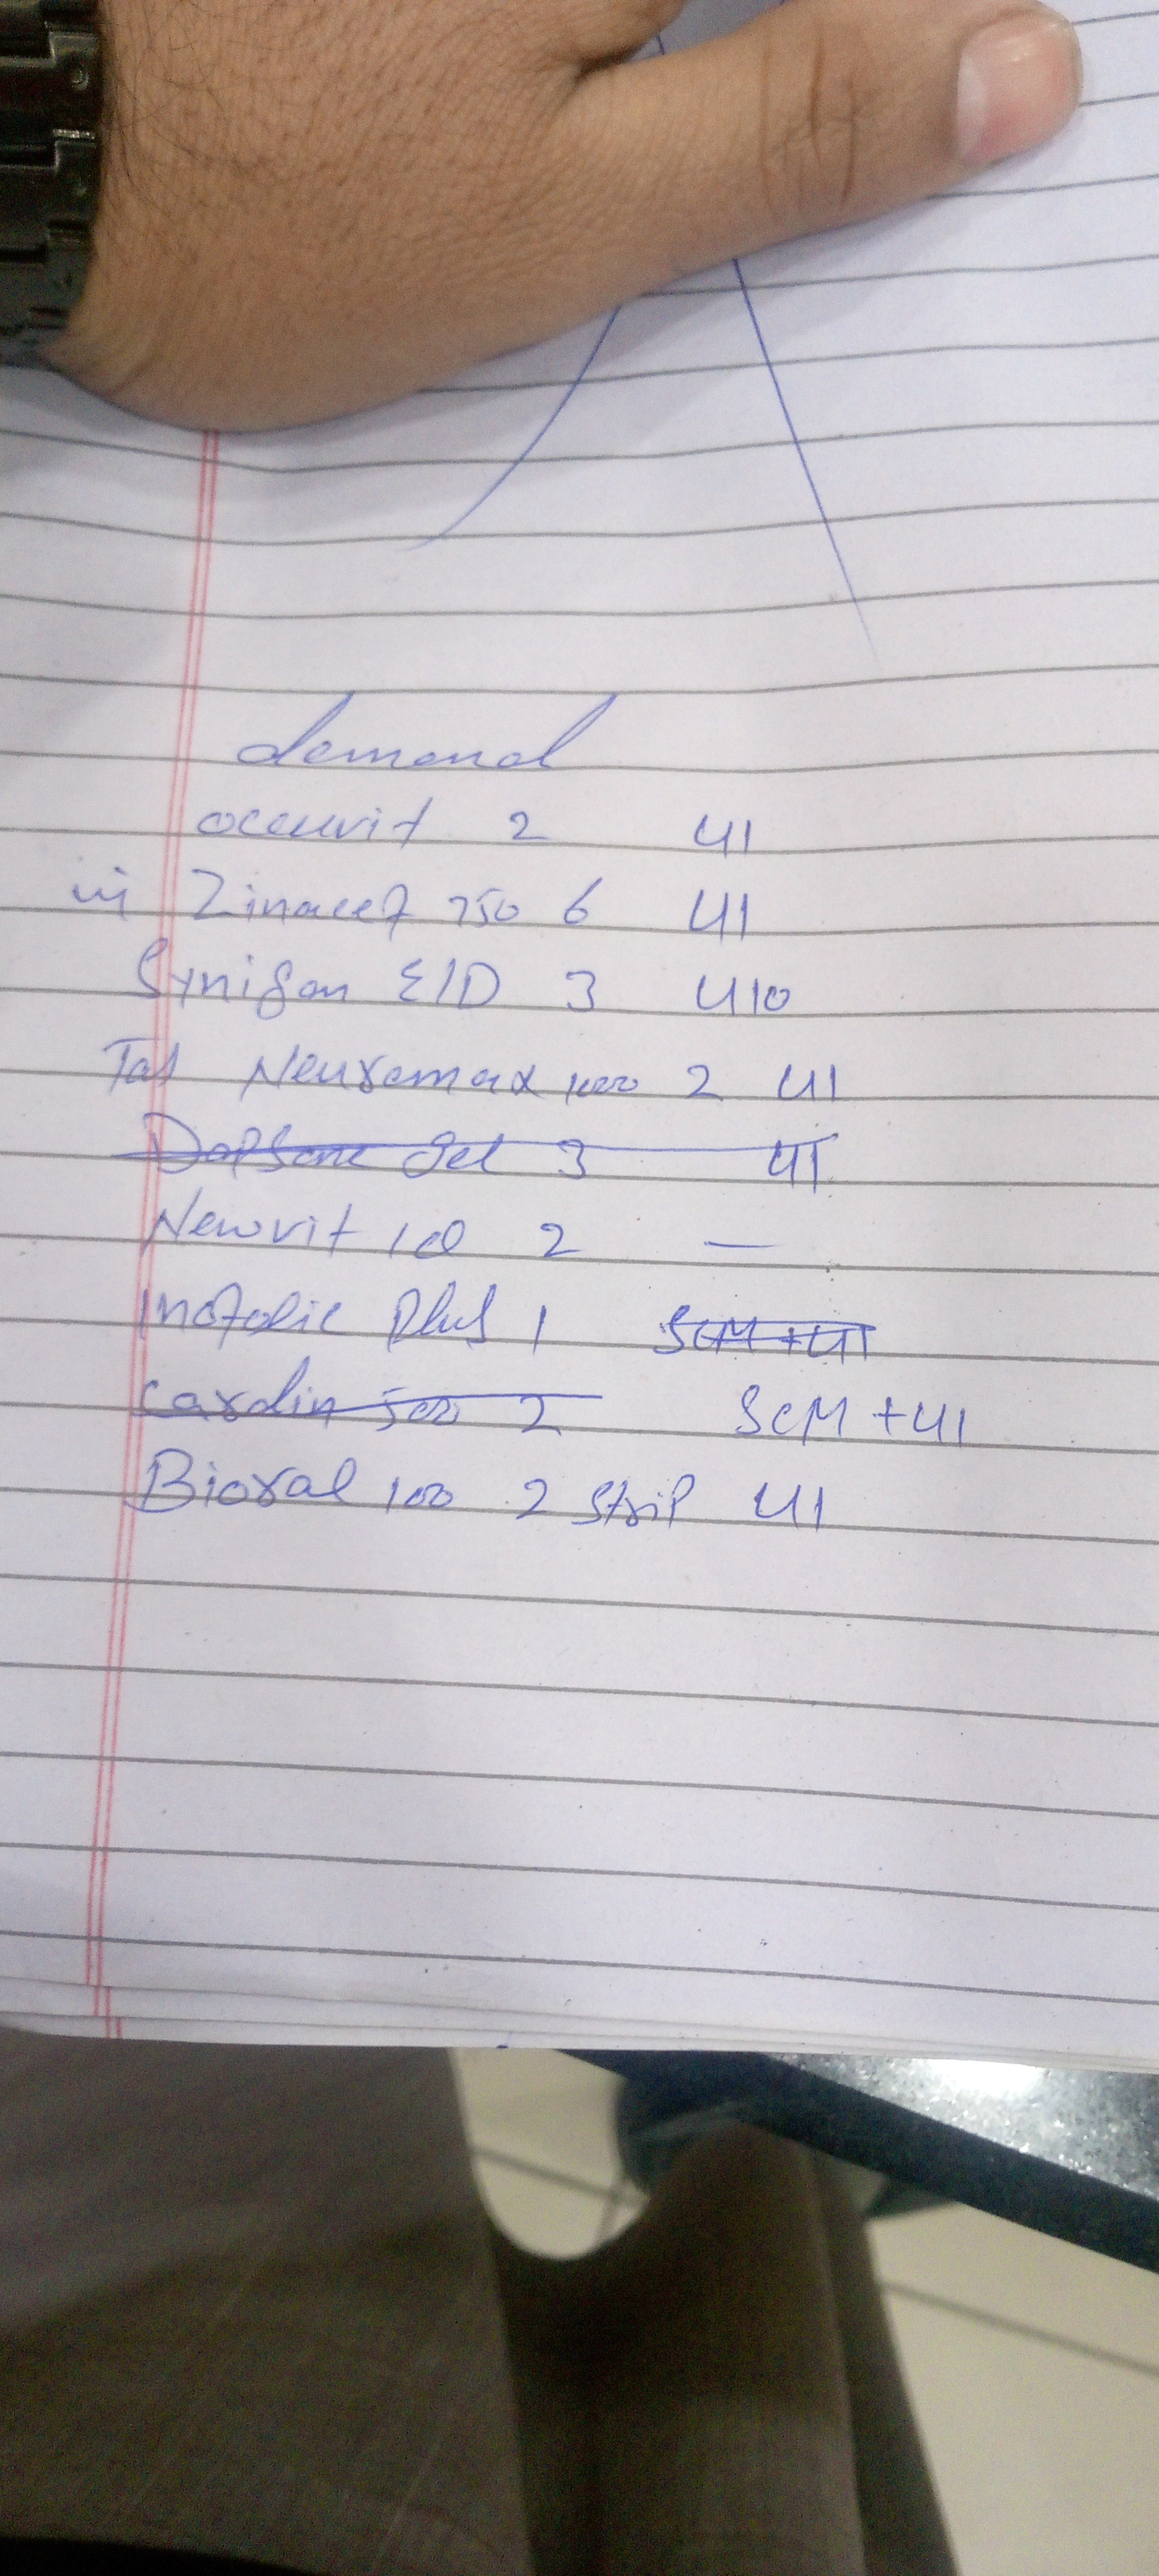 demand
occuvit 2 U1
inj Zinacef 750 6 U1
Synigan E/D 3 U10
Tab Neuromax 1000 2 U1
Dapsone Gel 3 U1
Newvit 2 —
Inofolic Plus 1 SCM+U1
cardin 500 2 SCM+U1
Bioral 100 2 Strip U1